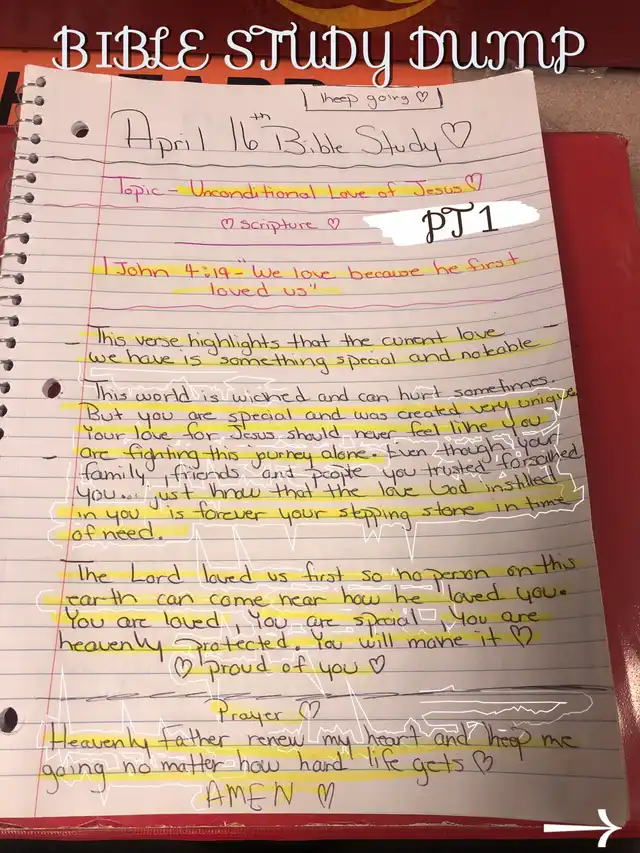 BIBLE STUDY DUMP
Keep going ♡
April 16th Bible Study ♡
Topic - Unconditional Love of Jesus ♡
♡ Scripture ♡
PT 1
1 John 4:19 - "We love because he first
loved us"
- This verse highlights that the current love -
we have is something special and notable
This world is wicked and can hurt sometimes.
But you are special and was created very unique.
Your love for Jesus should never feel like you
- are fighting this journey alone. Even though your
family, friends and people you trusted forsaked
you... just know that the love God instilled
in you is forever your stepping stone in time
of need.
- The Lord loved us first so no person on this
earth can come near how he loved you.
You are loved, You are special, You are
heavenly protected. You will make it ♡
♡ proud of you ♡
Prayer ♡
Heavenly Father renew my heart and keep me
going no matter how hard life gets ♡
AMEN ♡